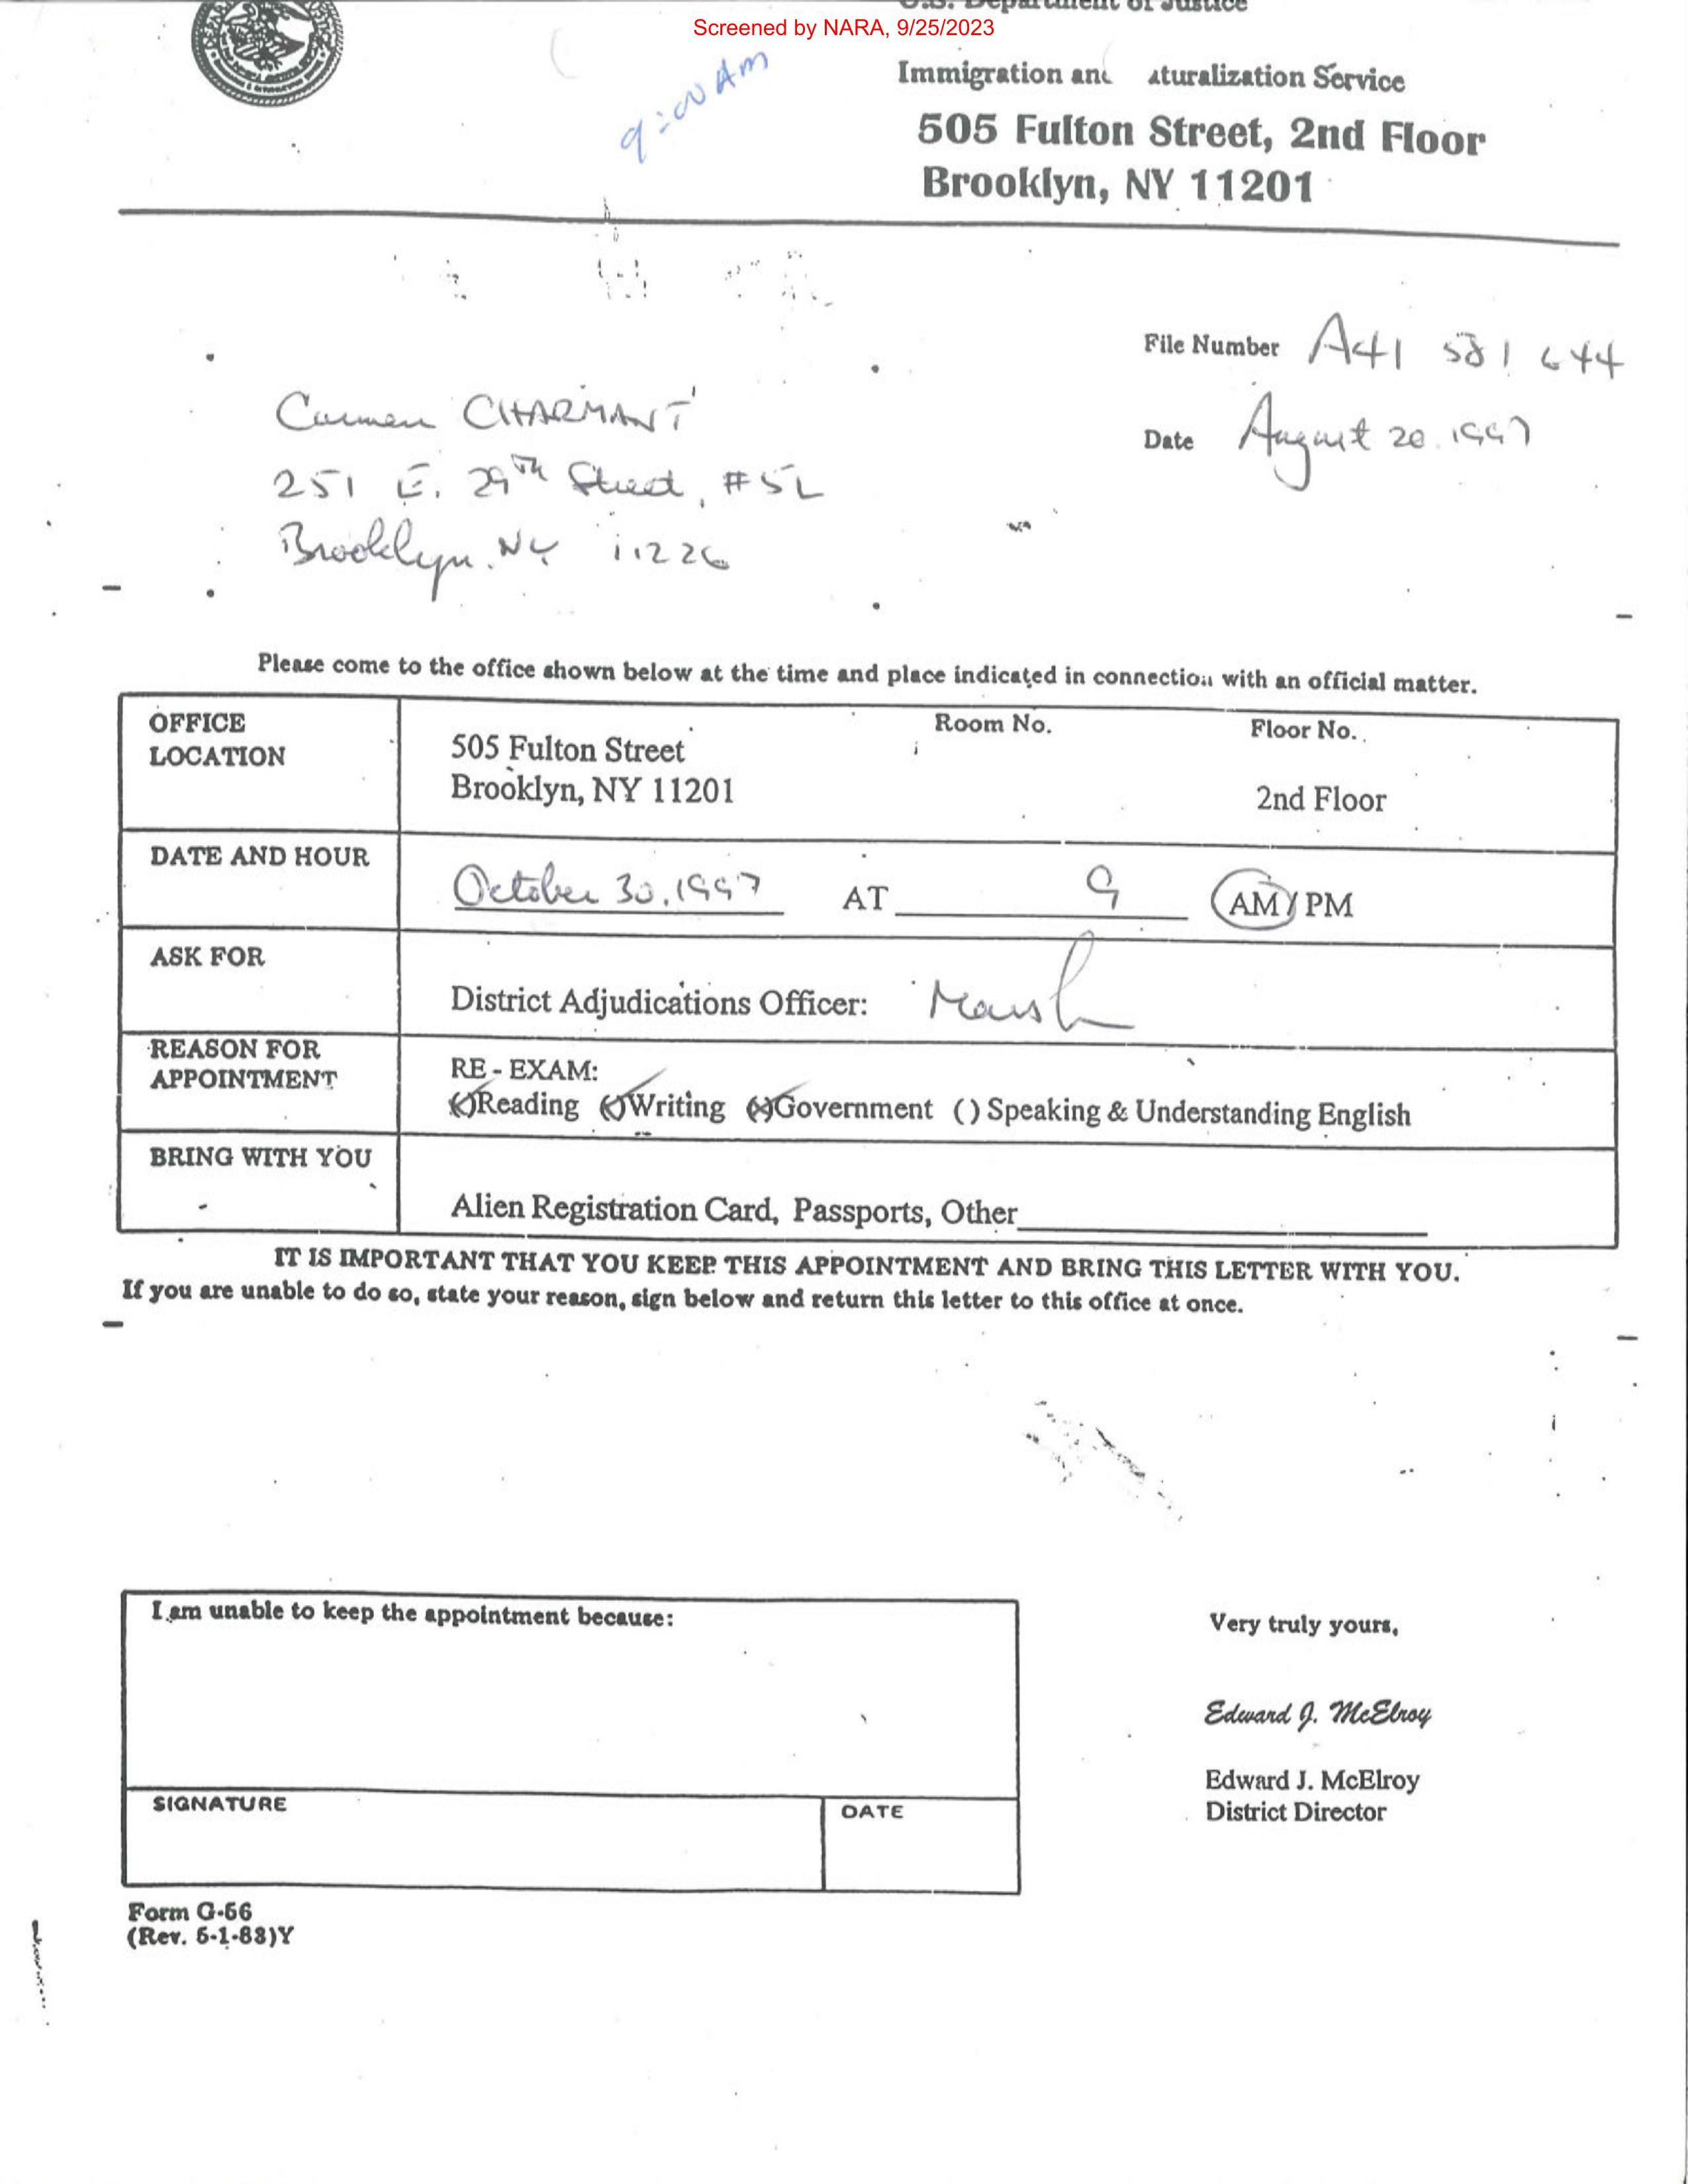 U.S. Department of Justice
Screened by NARA, 9/25/2023
9:00 AM
Immigration and aturalization Service
505 Fulton Street, 2nd Floor
Brooklyn, NY 11201
File Number A41 581 644
Carmen CHARMANT
Date August 20, 1997
251 E. 29th Street, #5L
Brooklyn, NY 11226
Please come to the office shown below at the time and place indicated in connection with an official matter.
OFFICE LOCATION
505 Fulton Street
Brooklyn, NY 11201
Room No.
Floor No.
2nd Floor
DATE AND HOUR
October 30, 1997 AT 9 AM / PM
ASK FOR
District Adjudications Officer: Marsh
REASON FOR APPOINTMENT
RE - EXAM:
(x)Reading (x)Writing (x)Government ( ) Speaking & Understanding English
BRING WITH YOU
Alien Registration Card, Passports, Other
IT IS IMPORTANT THAT YOU KEEP THIS APPOINTMENT AND BRING THIS LETTER WITH YOU.
If you are unable to do so, state your reason, sign below and return this letter to this office at once.
I am unable to keep the appointment because:
SIGNATURE
DATE
Very truly yours,
Edward J. McElroy
Edward J. McElroy
District Director
Form G-56
(Rev. 5-1-83)Y